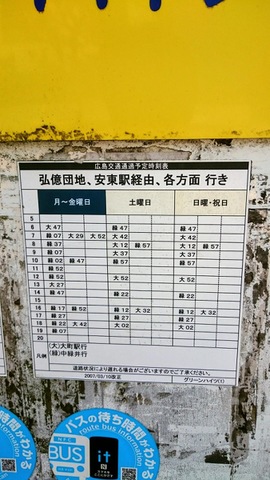 広島交通通過予定時刻表
弘億団地、安東駅経由、各方面 行き
月～金曜日 土曜日 日曜・祝日
5
6 大47 緑47 緑47
7 緑07 大29 大52 大37 大37
8 緑07 大12 緑57 大12 緑57
9 緑37 緑37 緑37
10 緑02 緑47 緑57 緑57
11 緑52
12 緑52 大52 大52
13 大27
14 緑47 緑22 緑22
15
16
17 緑17 緑52 緑12 大32 緑12 大32
18 緑27 緑27
19 緑22 大42 大02 大02
20 大02
凡例
(大)大町駅行
(緑)中緑井行
道路状況により遅れる場合がございますのでご了承ください。
2007/03/10改正 グリーンハイツ(1)
バスの待ち時間がわかる
route bus information
BUS it